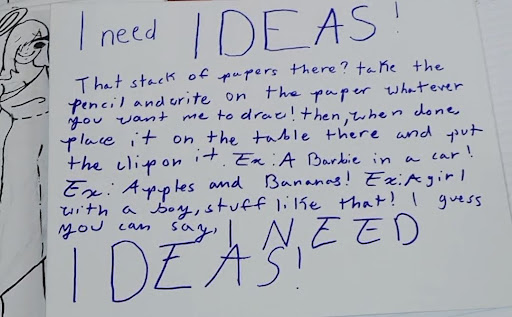 I need IDEAS!
That stack of papers there? take the
pencil and write on the paper whatever
you want me to draw! then, when done,
place it on the table there and put
the clip on it. Ex: A Barbie in a car!
Ex: Apples and Bananas! Ex: A girl
with a boy, stuff like that! I guess
you can say, I NEED
IDEAS!